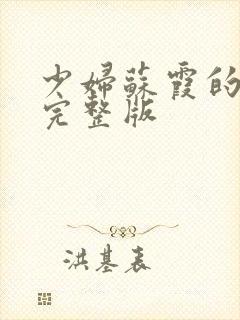 少婦蘇霞的
完整版
洪基表